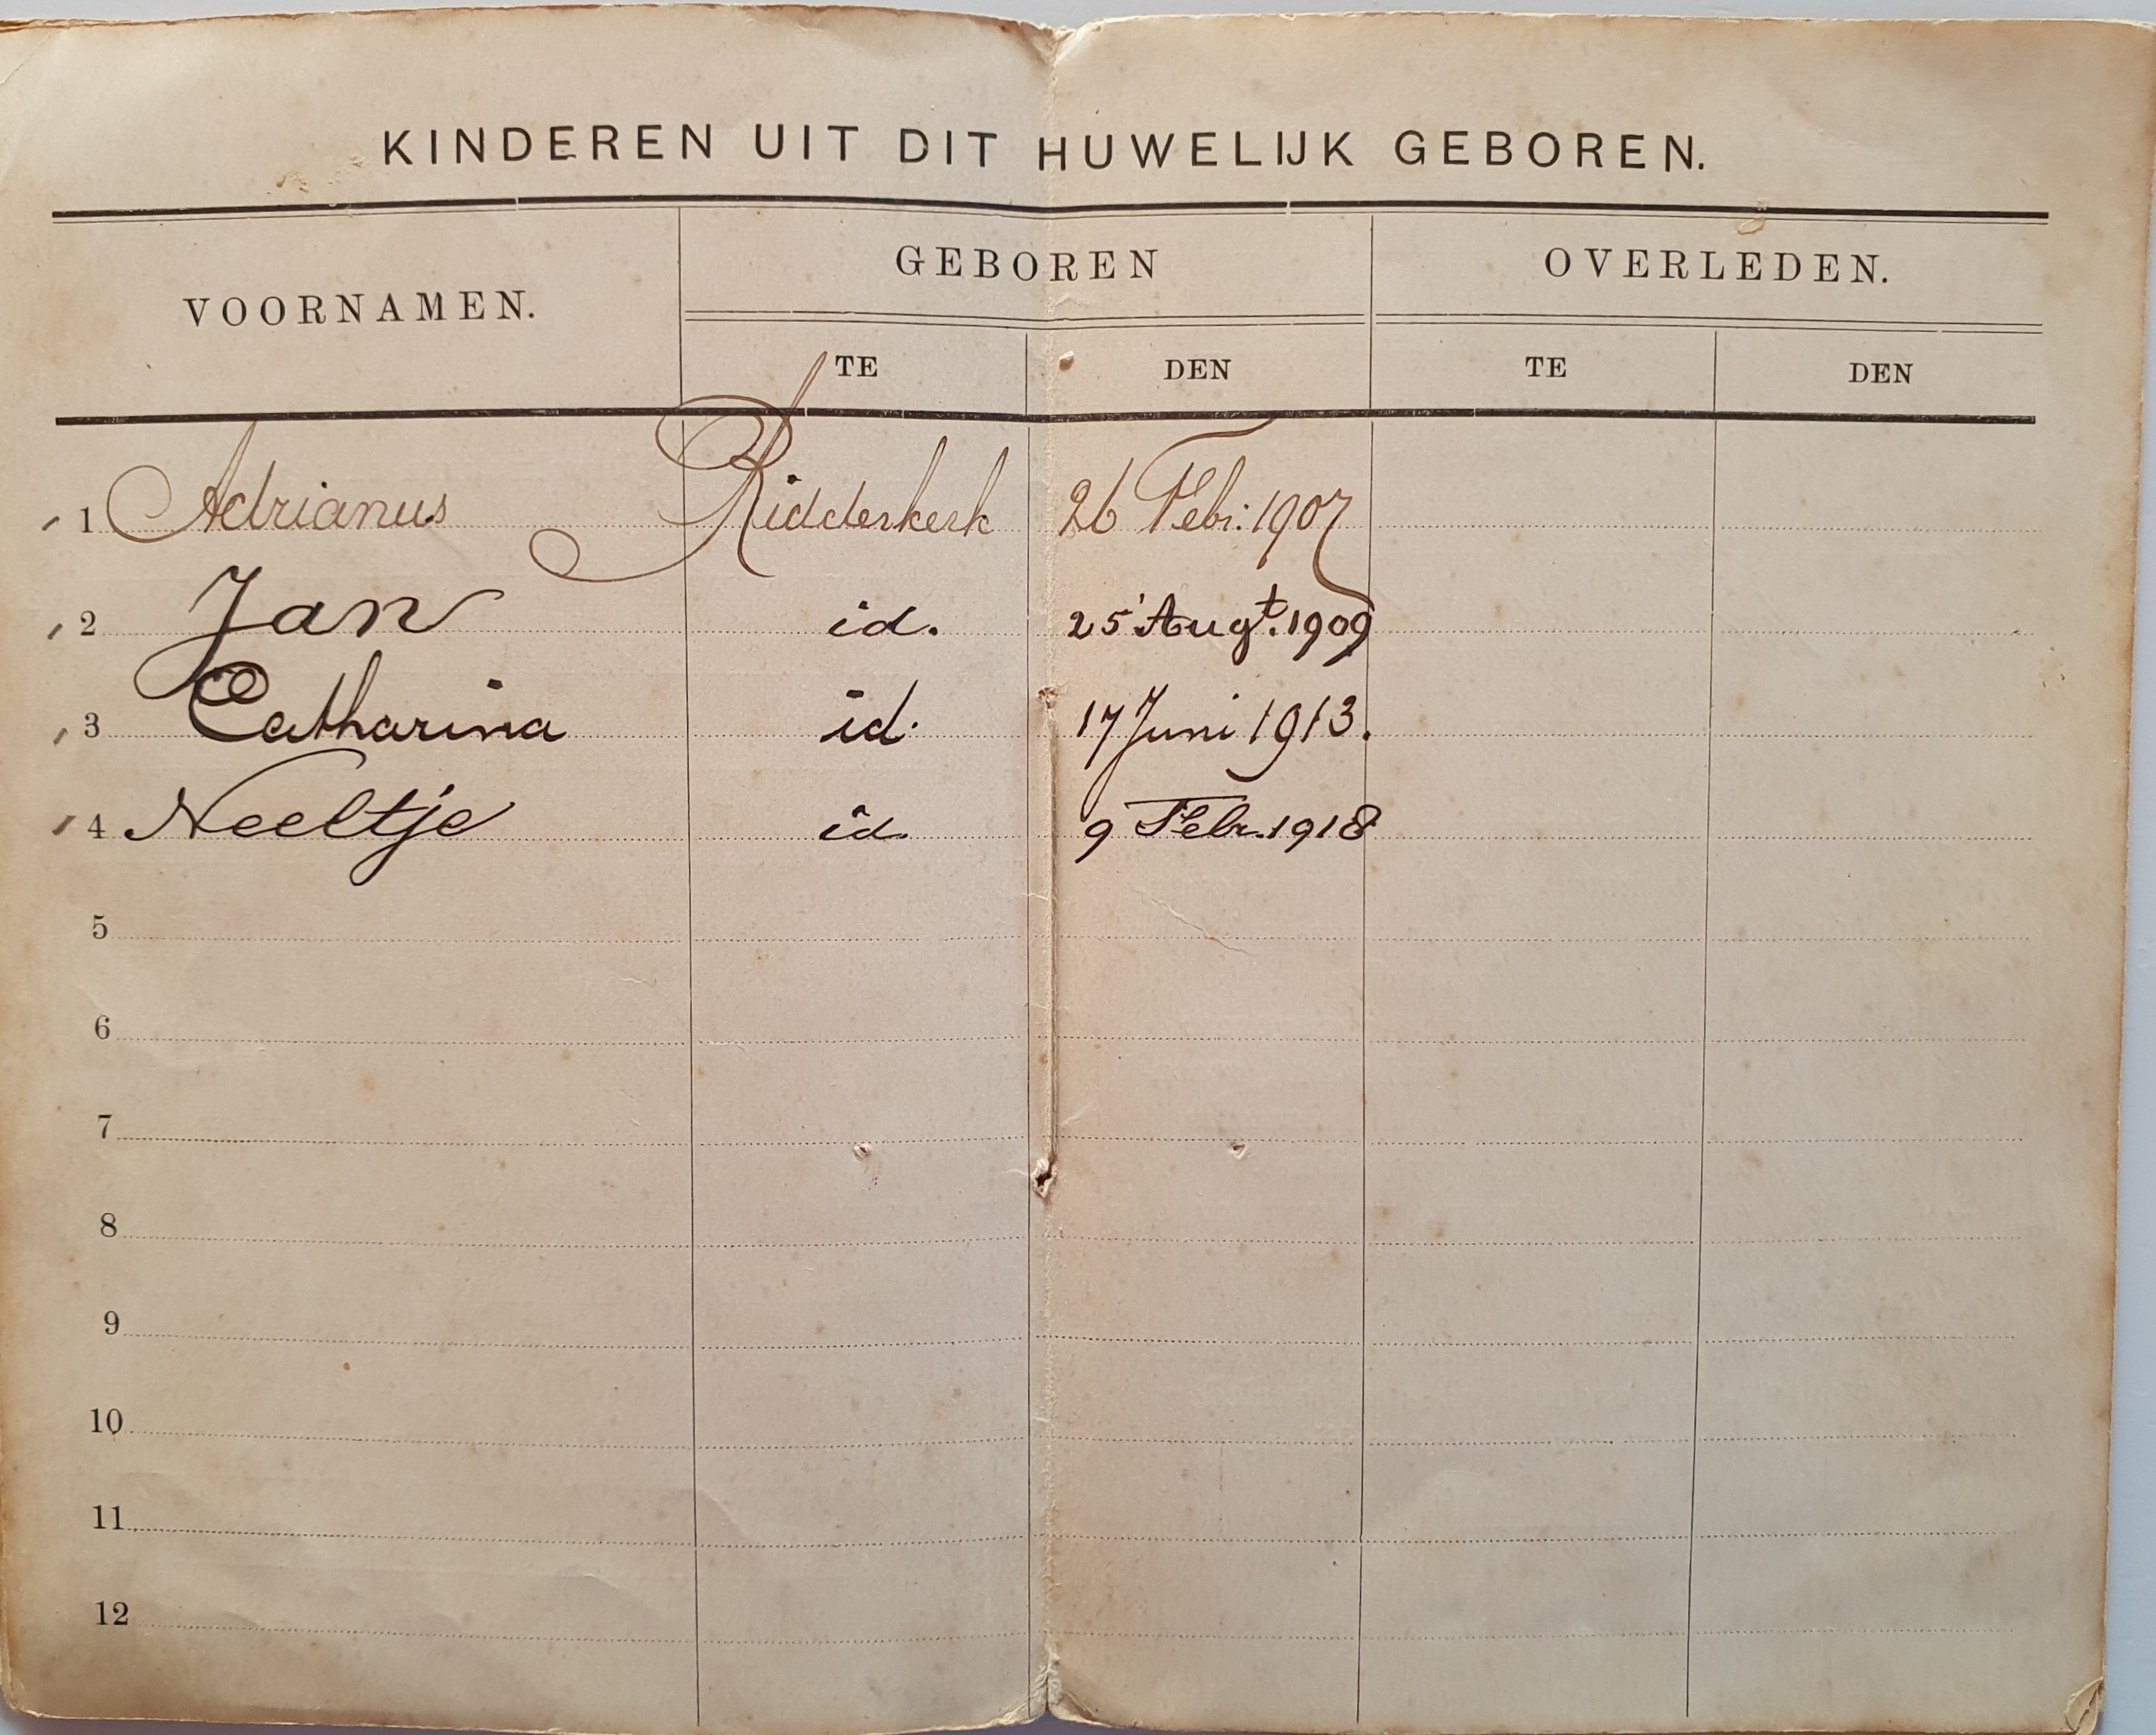 KINDEREN UIT DIT HUWELIJK GEBOREN.
VOORNAMEN. GEBOREN OVERLEDEN.
TE DEN TE DEN
1 Adrianus Ridderkerk 26 Febr: 1907
2 Jan id. 25 Augt. 1909
3 Catharina id. 17 Juni 1913.
4 Neeltje id. 9 Febr. 1918
5
6
7
8
9
10
11
12